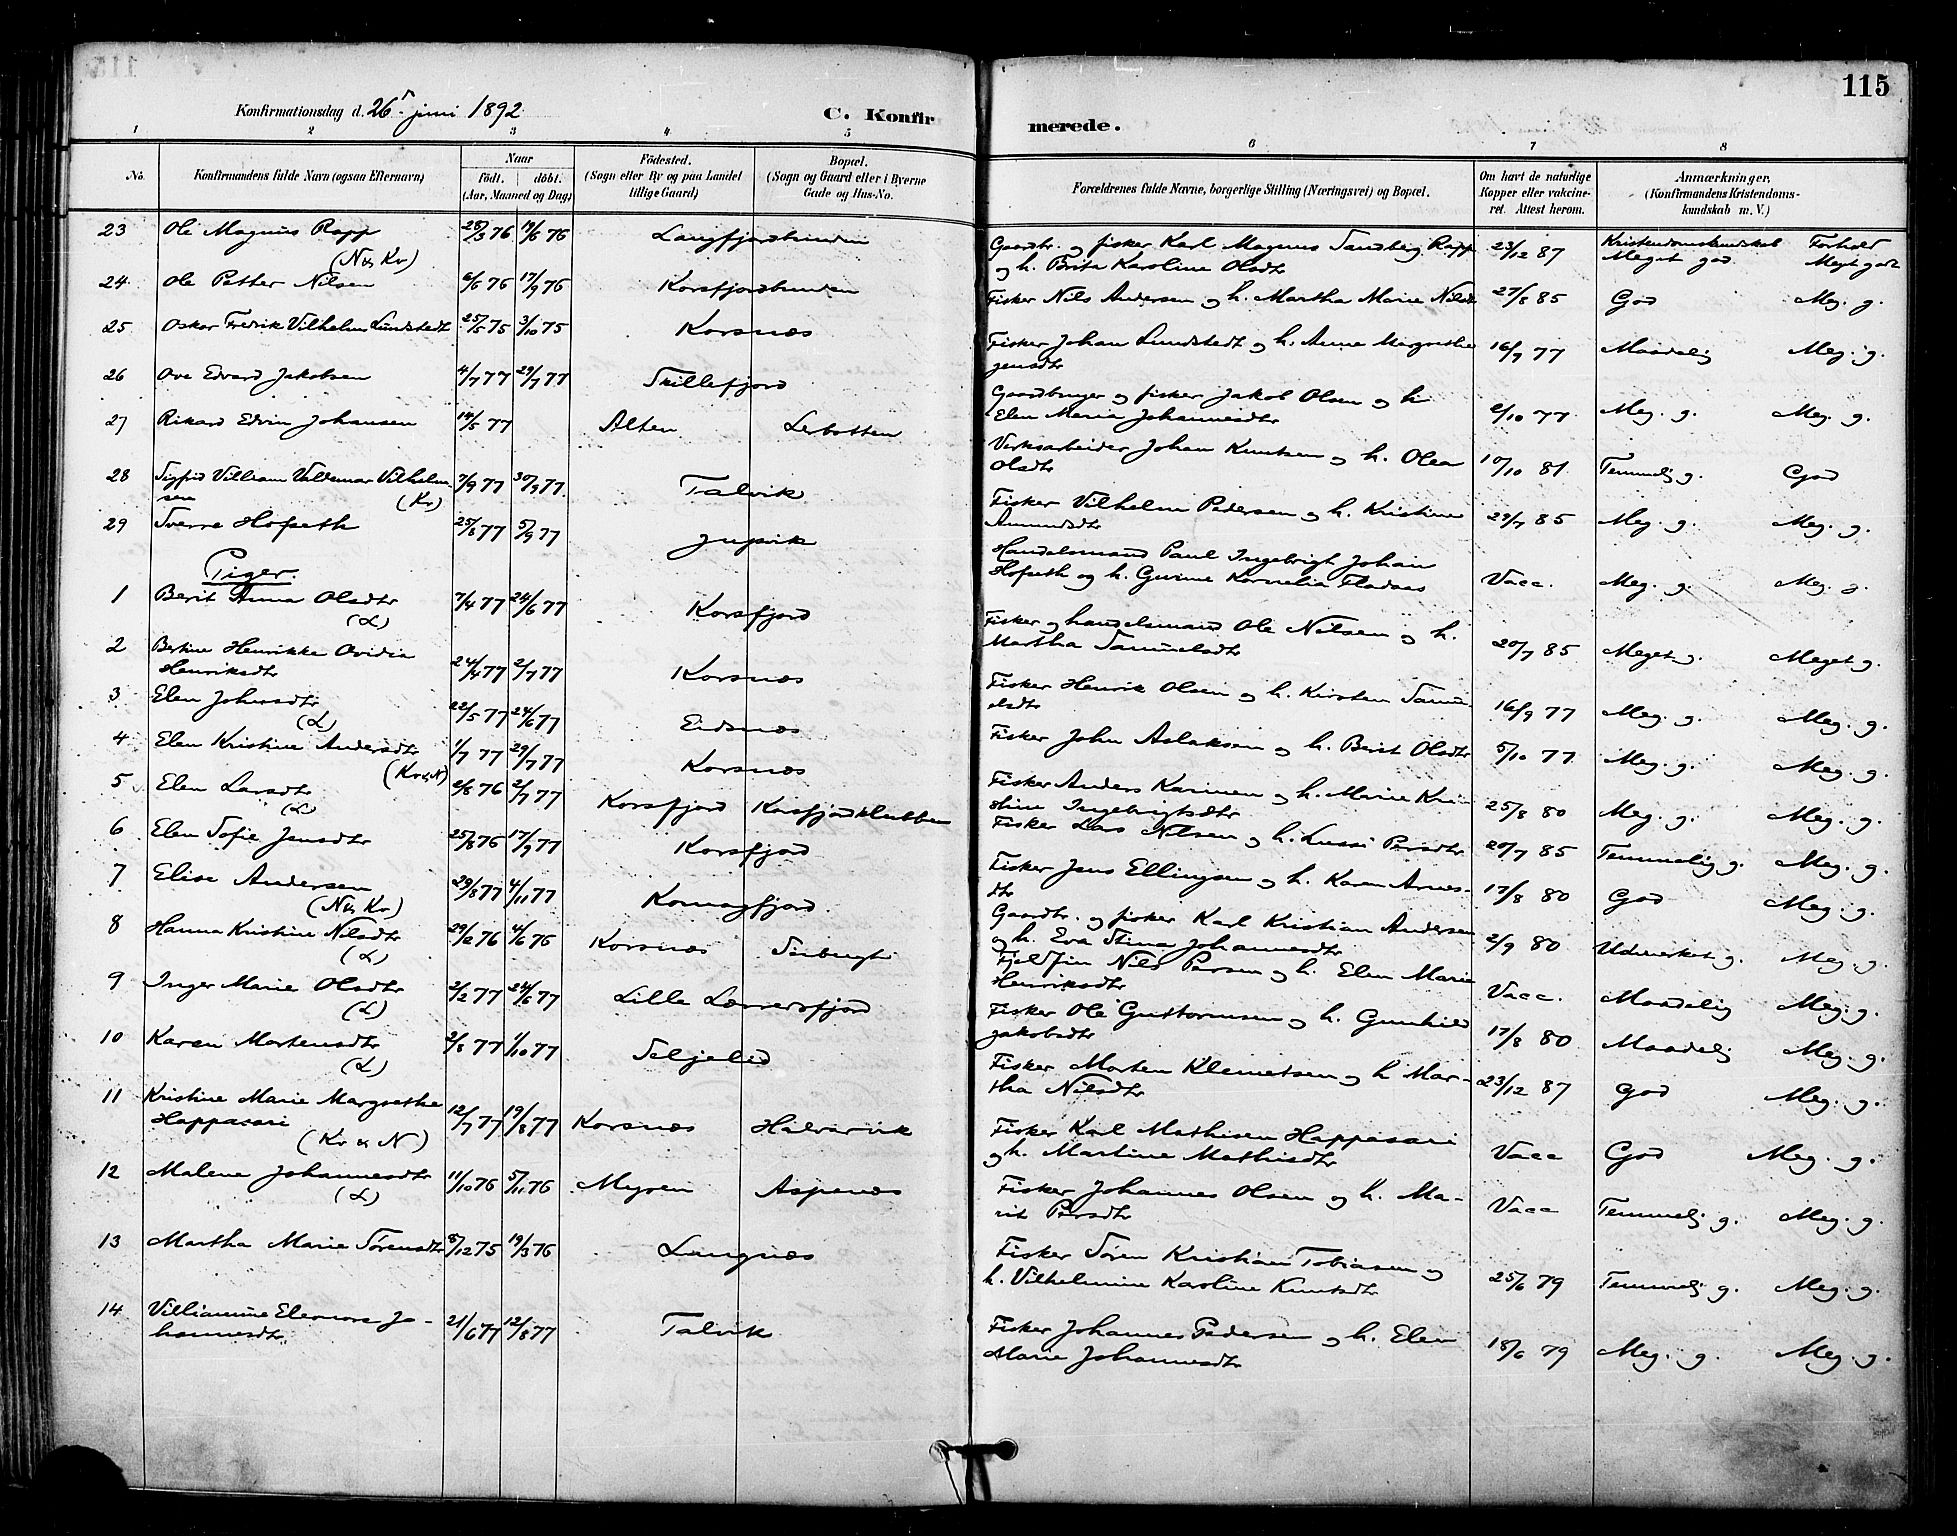 115
Konfirmationsdag d. 26de juni 1892
C. Konfirmerede.
1 2 3 4 5 6 7 8
No.
Konfirmandens fulde Navn (ogsaa Efternavn)
Naar
födt. döbt.
(Aar, Maaned og Dag)
Födested.
(Sogn eller By og paa Landet
tillige Gaard)
Bopæl.
(Sogn og Gaard eller i Byerne
Gade og Hus-No.
Forældrenes fulde Navne, borgerlige Stilling (Næringsvei) og Bopæl.
Om havt de naturlige
Kopper eller vakcine-
ret. Attest herom.
Anmærkninger,
(Konfirmandens Kristendoms-
kundskab m. V.)
Kristendomskundskab Forhold
23 Ole Magnus Rapp (N & Kv) 28/3 76 19/6 76 Langfjordbunden Gaardbr. og fisker Karl Magnus Sandberg Rapp
og h. Brita Karoline Olsdtr 23/12 87 Meget god Meget godt
24 Ole Petter Nilsen 6/6 76 17/9 76 Korsfjordbunden Fisker Nils Andersen og h. Martha Marie Nilsdtr 27/8 85 God Meg. g.
25 Oskar Fredrik Vilhelm Lundstedt 25/5 75 3/10 75 Korsnæs Fisker Johan Lundstedt og h. Anne Margrethe
Jensdtr 16/9 77 Maadelig Meg. g.
26 Ove Edvard Jakobsen 4/7 77 29/7 77 Skillefjord Gaardbruger og fisker Jakob Olsen og h.
Elen Maria Johannesdtr 2/10 77 Meg. g. Meg. g.
27 Rikard Edvin Johansen 14/5 77 Alten Lerbotten Verksarbeider Johan Knutsen og h. Olea
Olsdtr 10/10 81 Temmelig g. God
28 Sigfrid Villiam Valdemar Vilhelm-
sen (Kv) 7/9 77 30/9 77 Talvik Fisker Vilhelm Pedersen og h. Kristine
Amundsdtr 29/7 85 Meg. g. Meg. g.
29 Sverre Hofseth 25/6 77 5/9 77 Jupvik Handelsmand Paul Ingebrigt Johan
Hofseth og h. Gurine Kornelia Fladaas Vacc. Meg. g. Meg. g.
Piger.
1 Berit Anna Olsdtr (L) 7/4 77 24/6 77 Korsfjord Fisker og handelsmand Ole Nilsen og h.
Martha Samuelsdtr 20/7 85 Meget g. Meget g.
2 Bertine Henrikke Ovidia
Henriksdtr 24/4 77 2/7 77 Korsnæs Fisker Henrik Olsen og h. Kirsten Samu-
elsdtr 16/9 77 Meg. g. Meg. g.
3 Elen Johnsdtr (L) 22/5 77 24/6 77 Eidsnæs Fisker John Aslaksen og h. Berit Olsdtr 5/10 77 Meg. g. Meg. g.
4 Elen Kristine Andersdtr (Kv & N) 1/7 77 29/7 77 Korsnæs Fisker Anders Karinen og h. Marie Kri-
stine Ingebrigtsdtr 25/8 80 Meg. g. Meg. g.
5 Elen Larsdtr (L) 2/8 76 2/7 77 Korsfjord Korsfjordklubben Fisker Lars Nilsen og h. Lussi Persdtr 20/7 85 Temmelig g. Meg. g.
6 Elen Sofie Jensdtr 25/8 76 17/9 77 Korsfjord Fisker Jens Ellingsen og h. Karen Arnes-
dtr 17/8 80 God Meg. g.
7 Elise Andersen (N & Kv) 29/8 77 4/11 77 Komagfjord Gaardbr. og fisker Karl Kristian Andersen
og h. Eva Stina Johannesdtr 2/9 80 Udmerket g. Meg. g.
8 Hanna Kristine Nilsdtr (L) 29/2 76 4/6 76 Korsnæs Fjeldfin Nils Persen og h. Elen Marie
Henriksdtr Vacc. Maadelig Meg. g.
9 Inger Marie Olsdtr (L) 2/2 77 24/6 77 Lille Lerresfjord Fisker Ole Guttormsen og h. Gunhild
Jakobsdtr 17/8 80 Maadelig Meg. g.
10 Karen Mortensdtr (L) 2/8 77 1/10 77 Seljelid Fisker Morten Klemetsen og h Mar-
tha Nilsdtr 23/12 87 God Meg. g.
11 Kristine Marie Margrethe
Happasari (Kv & N) 12/7 77 19/8 77 Korsnæs Halvarvik Fisker Karl Mathisen Happasari
og h. Martine Mathisdtr Vacc God Meg. g.
12 Malene Johannesdtr (L) 11/10 76 5/11 76 Myren Aspenæs Fisker Johannes Olsen og h. Ma-
rit Persdtr Vacc Temmelig g. Meg. g.
13 Martha Marie Sørensdtr 8/12 75 19/3 76 Langnæs Fisker Søren Kristian Tobiasen og
h. Vilhelmine Karoline Knutsdtr 25/6 79 Temmelig g. Meg. g.
14 Villiamine Elenore Jo-
hannesdtr 21/6 77 12/8 77 Talvik Fisker Johannes Pedersen og h. Elen
Marie Johannesdtr 18/6 79 Meg. g. Meg. g.